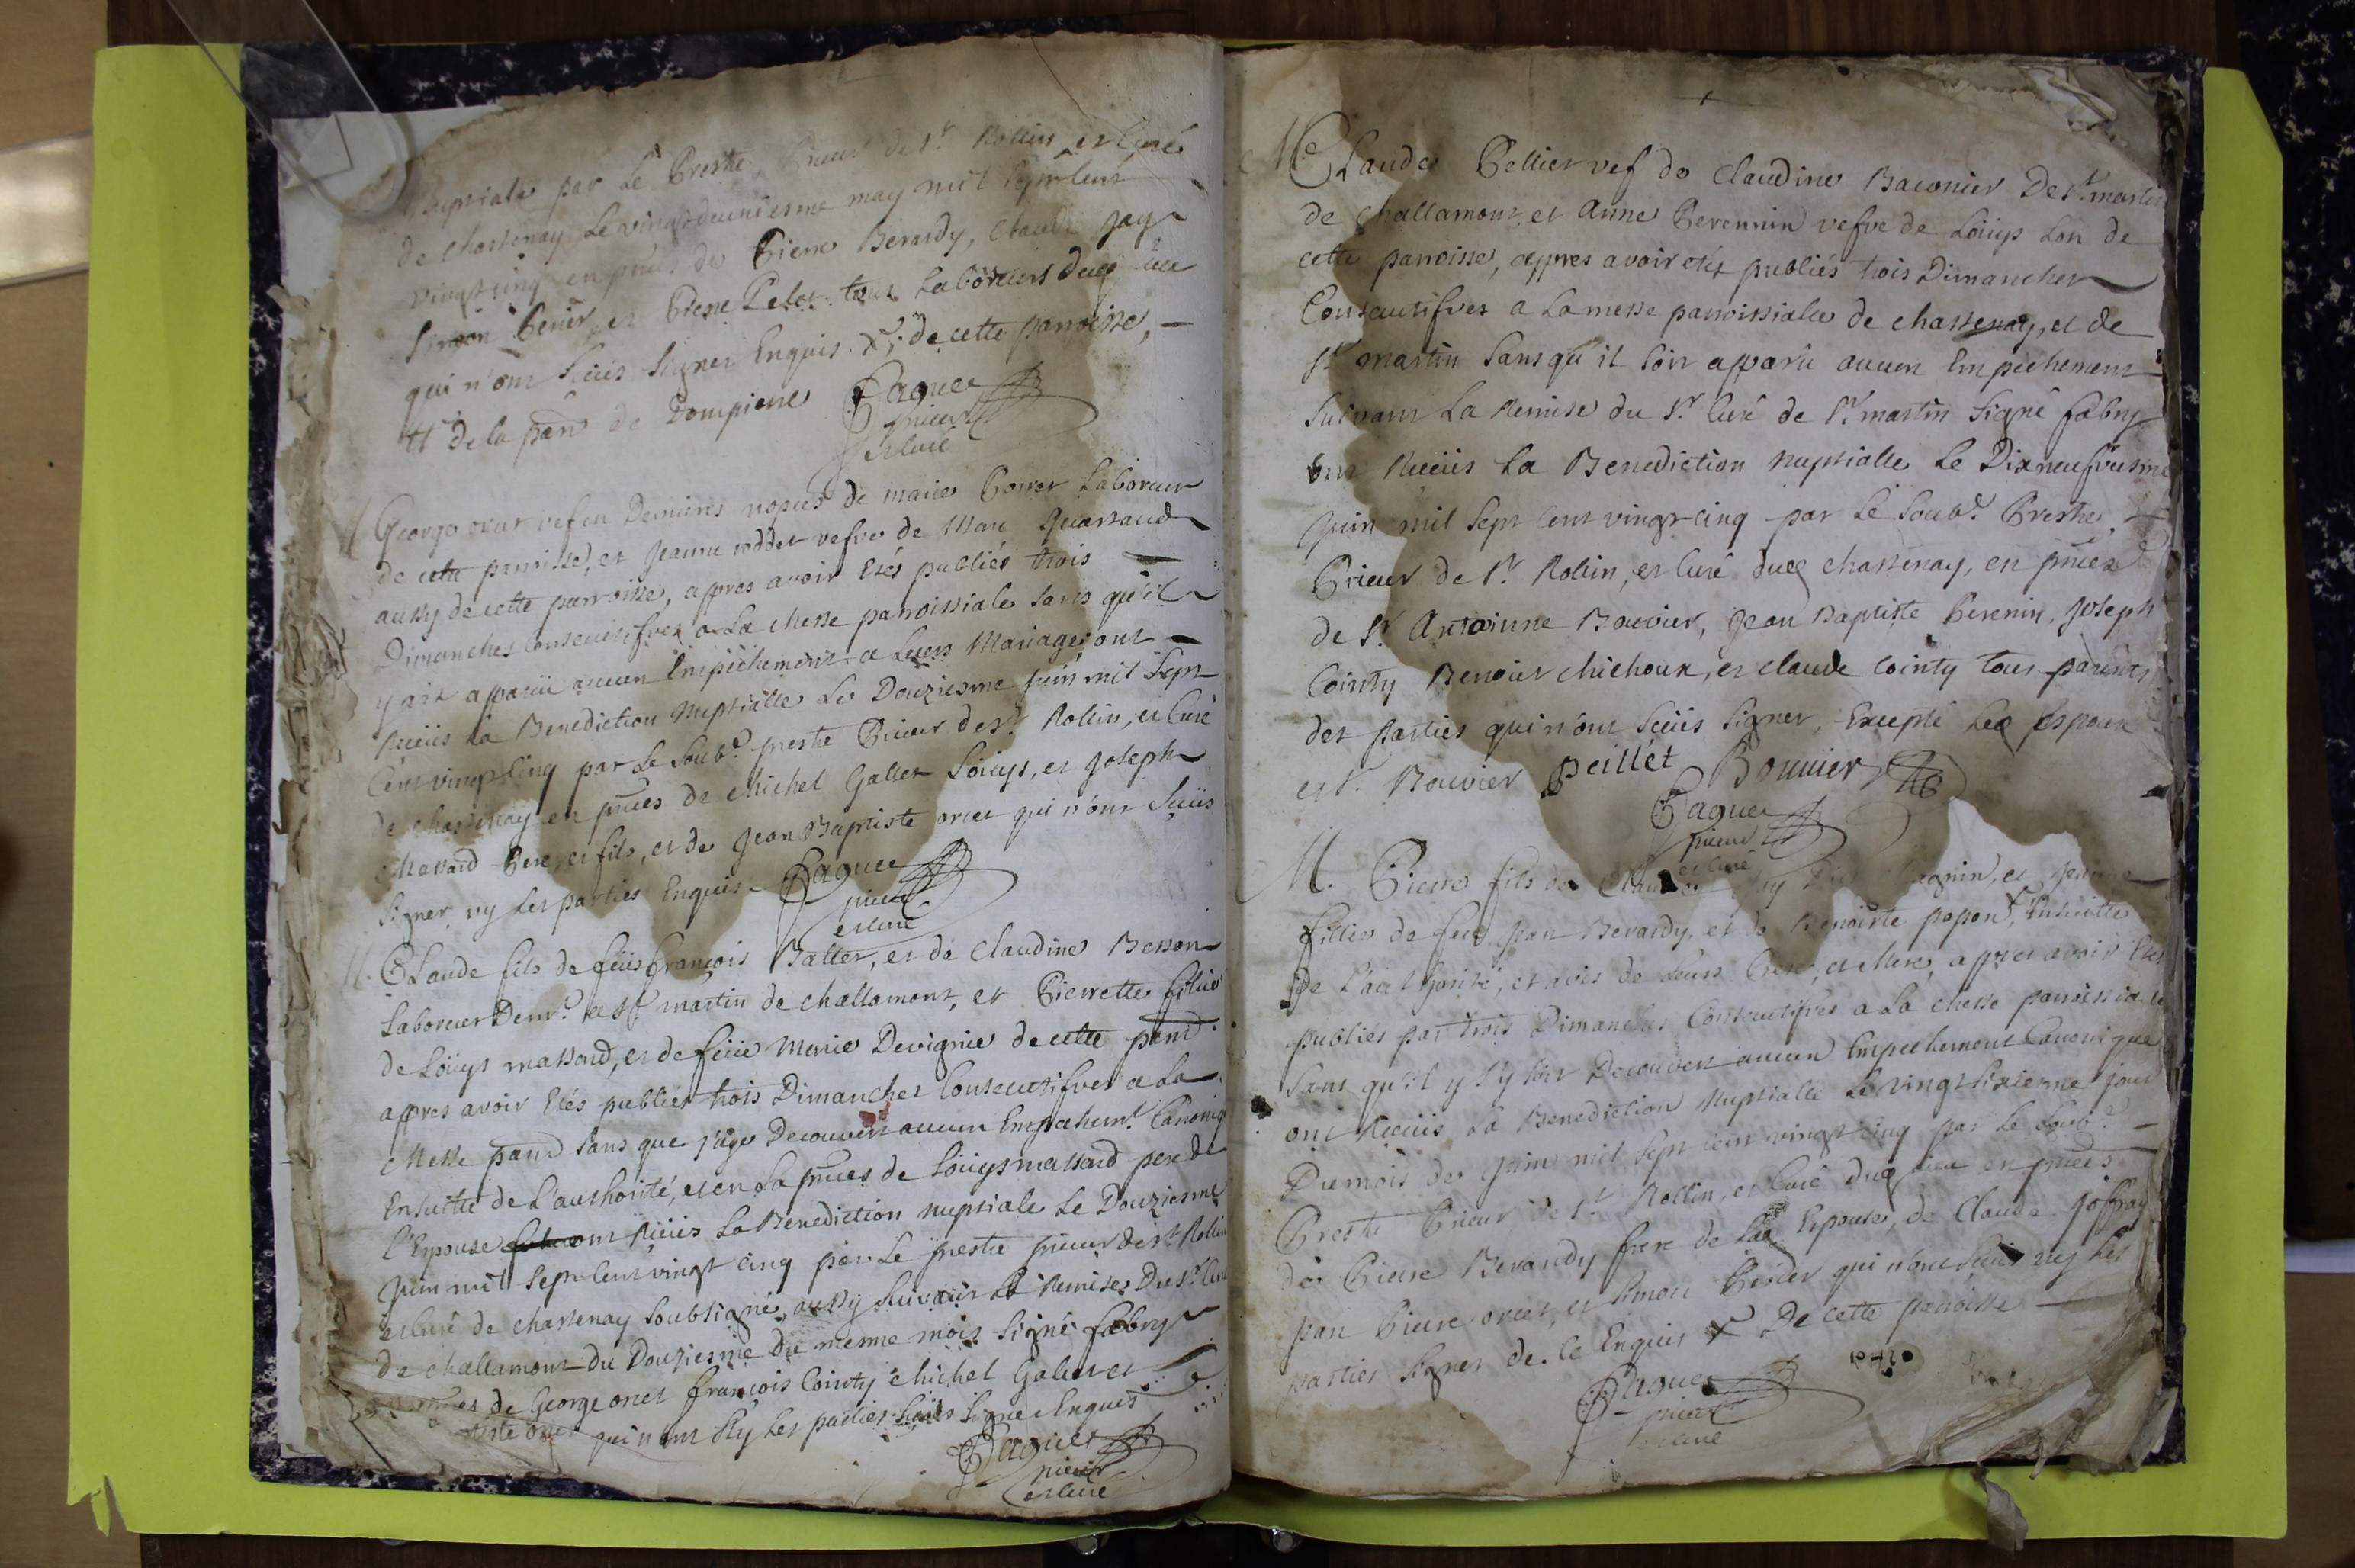 nuptiale par le Prestre, Prieur de St Rollin et Curé
de Chastenay le vingt deuxiesme may mil sept cent
vingt cinq en pnce de Pierre Berardy, Claude Jay
Simon et Pierre tous Laboreurs dud lieu
qui n'ont sceus signer Enquis X, de cette parroisse,
de la parr de Dompierre Paguet
prieur
et curé
M George orcet vef en Dernieres nopces de marie Laboreur
de cette parroisse, et Jeanne vefve de Marc
aussy de cette parroisse, appres avoir Etés publiés trois
Dimanches Consecutifves a La Messe parroissiale sans qu'il
y ait apparu aucun Empêchement a Leurs Mariage ont
Receus La Benediction Nuptialle Le Douziesme Juin mil sept
Cent vingt Cinq par Le Soub.é prestre Prieur de St Rollin, et Curé
de Chastenay en pnces de Michel Galler Loüys, et Joseph
Massard Pere, et fils, et de Jean Baptiste orcet qui n'ont sceüs
signer ny Les parties Enquis Paguet
prieur
et curé
M. Claude fils de feüs François Batter, et de Claudine Besson
Laboreur Demt a St martin de challamont, et Pierrette fillie
de Loüys massard, et de feüe Marie Devignie de cette parr
appres avoir Etés publiés trois Dimanches Consecutifves a La
Messe parr sans que j'aye Decouvert aucun Empechemt Canoniq
Ensuitte de L'authorité, et en La pnces de Loüys massard pere de
l'Epouse ont Reçeüs La Benediction nuptiale Le Douziesme
Juin mil Sept Cent vingt Cinq par Le prestre prieur de St Rollin
et Curé de chastenay Soubsigné, aussy suivant La Remise Du Sr Curé
de challamont du Douziesme du mesme mois Signé fabry
de George orcet françois Cointy Michel Galler et
qui n'ont sy Les parties Sceüs Signer Enquis
Paguet
prieur
et curé
M Claude Pellier vef de Claudine Baconier De St martin
de challamont, et Anne Perennin vefve de Loüys Lon de
cette parroisse, appres avoir etés publiés trois Dimanches
Consecutifves a La messe parroissialle de chastenay, et de
St martin Sans qu'il soit apparu aucun Empechement
Suivant La Remise du Sr Curé de St martin Signé fabry
ont Receüs La Benediction Nuptialle Le Dixneufviesme
Juin mil Sept Cent vingt Cinq par Le Soub.é Prestre
Prieur de St Rollin, et Curé dud chastenay, en pnces
de Sr Antoinne Bouvier, Jean Baptiste Perenin, Joseph
Cointy Benoist Michoux, et Claude Cointy tous parents
des parties qui n'ont Sceüs Signer, Excepté Led Espoux
et Sr Bouvier peillet Bouuier
Paguet
prieur
et curé
M. Pierre fils de Claude et Jeanne
fillie de feu Jean Berardy, et de Benoiste popon, Ensuitte
De L'authorité, et avis de Leurs Pere, et Mere, appres avoir Etés
publiés par trois Dimanches Consecutifves a La Messe parroissiale
Sans qu'il y soit Decouvert aucun Empechement Canonique
ont Receüs La Benediction Nuptialle Le vingt Sixiesme jour
Du mois de Juin mil Sept Cent vingt Cinq par Le Soub.é
Prestre Prieur de St Rollin, et Curé dud Lieu en pnces
de Pierre Berardy frere de Lad Epouse, de Claude Joffray
Jean Pierre orcet, et Simon qui n'ont Sceüs ny Les
parties Signer de ce Enquis X De cette parroisse
Paguet
prieur
et curé